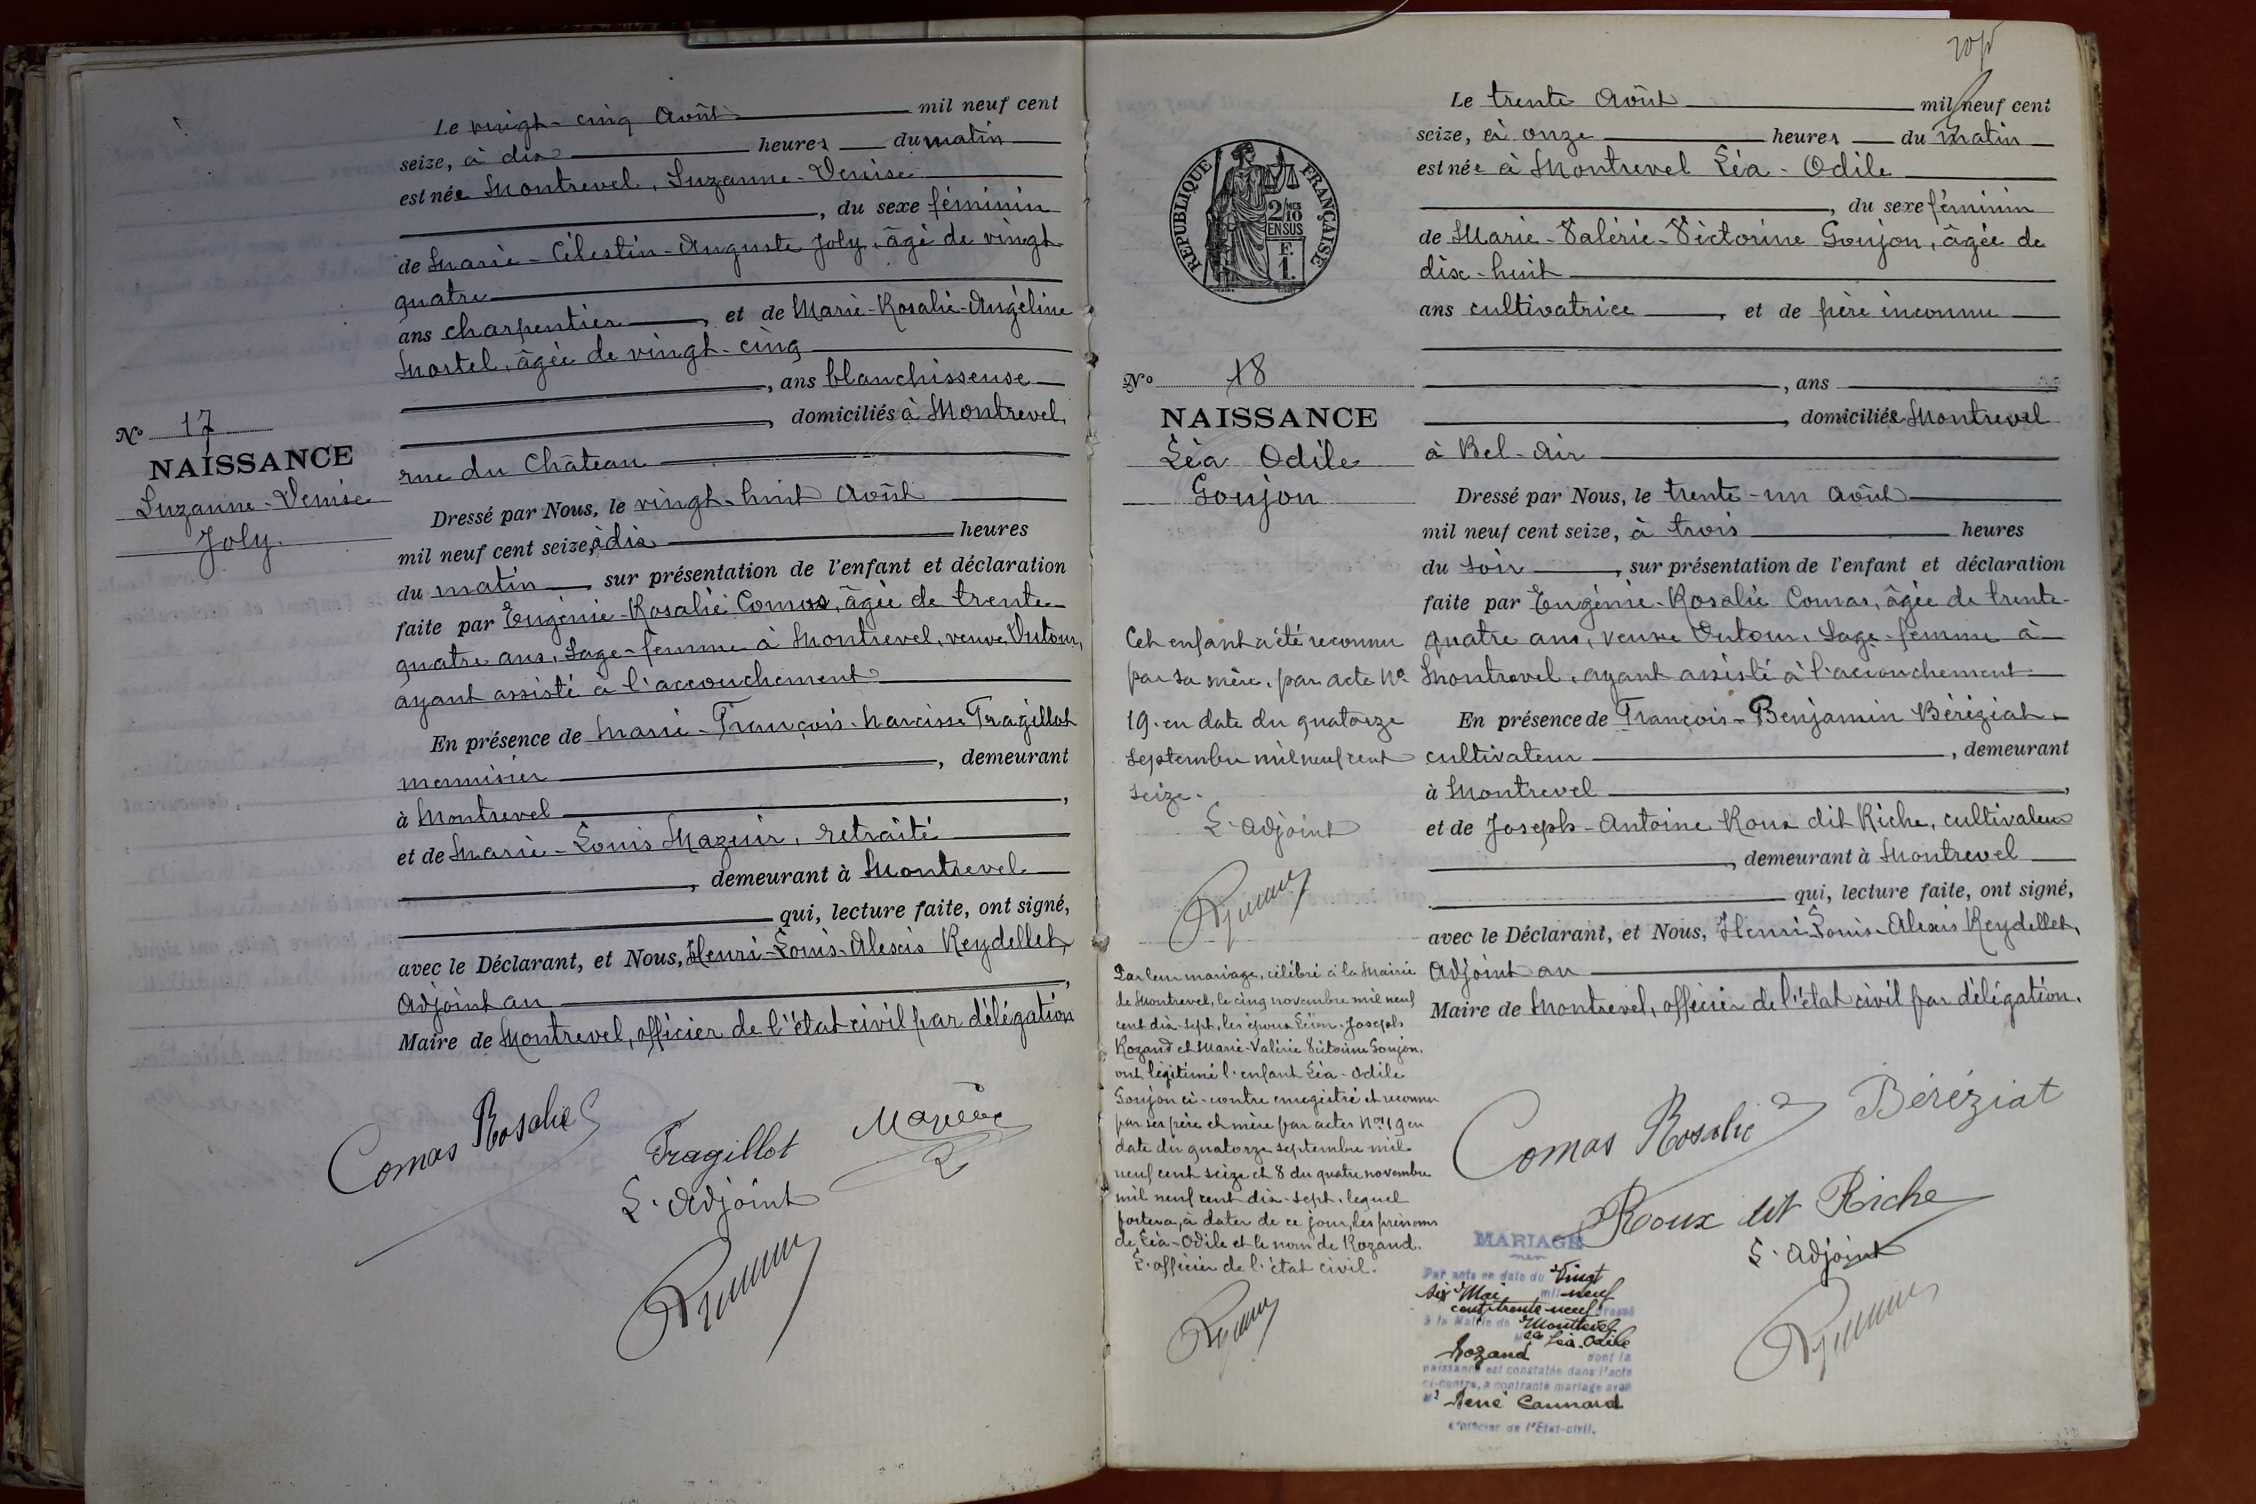 Le vingt-cinq Août mil neuf cent
seize, à dix heures du matin
est née Montrevel, Suzanne-Denise
, du sexe féminin
de Marie-Célestin-Auguste Joly, âgé de vingt-
quatre
ans charpentier, et de Marie-Rosalie-Angéline
Mortel, âgée de vingt-cinq
, ans blanchisseuse
, domiciliés à Montrevel,
rue du Château
Dressé par Nous, le vingt-huit Août
mil neuf cent seize, à dix heures
du matin, sur présentation de l'enfant et déclaration
faite par Eugénie-Rosalie Comas, âgée de trente-
quatre ans, Sage-femme à Montrevel, veuve Dutour,
ayant assisté à l'accouchement
En présence de Marie-François-Narcisse Fragillot
menuisier, demeurant
à Montrevel,
et de Marie-Louis Mazuir, retraité
, demeurant à Montrevel
qui, lecture faite, ont signé,
avec le Déclarant, et Nous, Henri-Louis-Alexis Reydellet,
Adjoint au,
Maire de Montrevel, officier de l'état civil par délégation
N° 17
NAISSANCE
Suzanne-Denise
Joly.
Comas Rosalie
Fragillot
L'Adjoint
RÉPUBLIQUE FRANÇAISE
2/10 MES
EN SUS
F.
1.
N° 18
NAISSANCE
Léa Odile
Goujon
Le trente Août mil neuf cent
seize, à onze heures du matin
est née à Montrevel Léa-Odile
, du sexe féminin
de Marie-Valérie-Victorine Goujon, âgée de
dix-huit
ans cultivatrice, et de père inconnu
, ans
, domiciliée Montrevel
à Bel-Air
Dressé par Nous, le trente-un Août
mil neuf cent seize, à trois heures
du soir, sur présentation de l'enfant et déclaration
faite par Eugénie-Rosalie Comas, âgée de trente-
quatre ans, veuve Dutour, Sage-femme à
Montrevel, ayant assisté à l'accouchement
En présence de François-Benjamin Béréziat,
cultivateur, demeurant
à Montrevel,
et de Joseph-Antoine Roux dit Riche, cultivateur
, demeurant à Montrevel
qui, lecture faite, ont signé,
avec le Déclarant, et Nous, Henri-Louis-Alexis Reydellet,
Adjoint au
Maire de Montrevel, officier de l'état civil par délégation.
Cet enfant a été reconnu
par sa mère, par acte N°
19 en date du quatorze
septembre mil neuf cent
seize.
L'Adjoint
Par leur mariage, célébré à la Mairie
de Montrevel, le cinq novembre mil neuf
cent dix-sept, les époux Léon-Joseph
Rozand et Marie-Valérie Victorine Goujon,
ont légitimé l'enfant Léa-Odile
Goujon ci-contre enregistré et reconnu
par ses père et mère par actes Nos 19 en
date du quatorze septembre mil
neuf cent seize et 8 du quatre novembre
mil neuf cent dix-sept, lequel
portera, à dater de ce jour, les prénoms
de Léa-Odile et le nom de Rozand.
L'officier de l'état civil.
Comas Rosalie
Béréziat
Roux dit Riche
L'Adjoint
MARIAGE
Par acte en date du Vingt
six Mai mil neuf
cent trente-neuf dressé
à la Mairie de Montrevel
Léa-Odile
Rozand dont la
naissance est constatée dans l'acte
ci-contre, a contracté mariage avec
Mr René Cannard
L'Officier de l'État-civil.